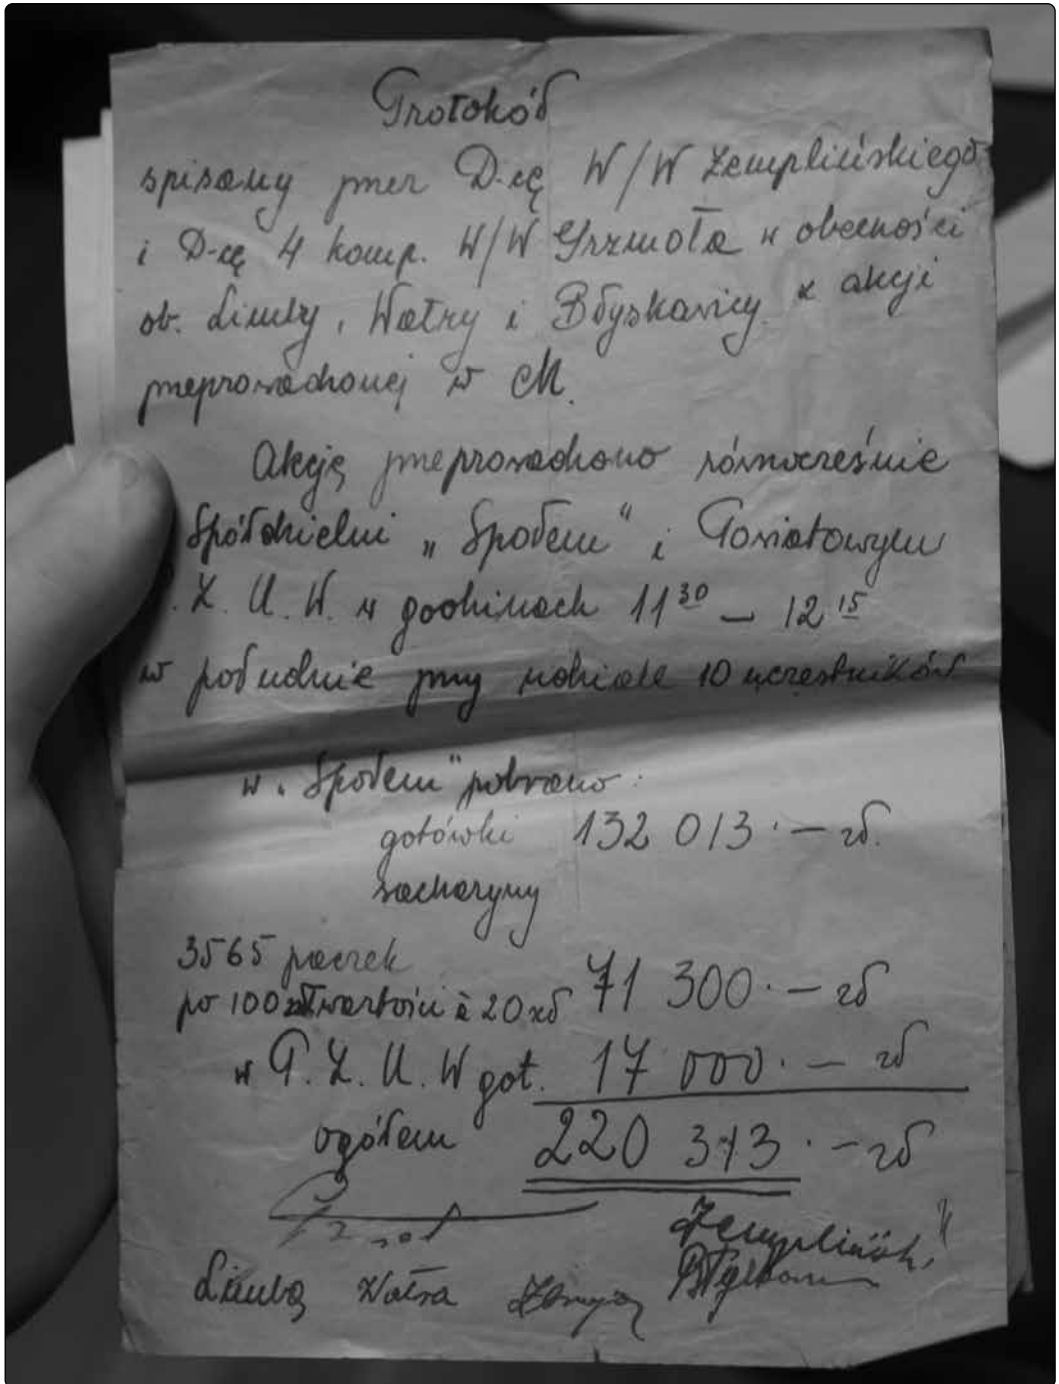 Protokół
spisany przez D-cę W/W Zemplińskiego
i D-cę 4 komp. W/W Grzmota w obecności
ob. Limby, Watry i Błyskawicy z akcji
przeprowadzonej w M.
Akcję przeprowadzono równocześnie
Spółdzielni „Społem“ i Powiatowym
Z. U. W. w godzinach 11 30 – 12 15
w południe przy udziale 10 uczestników
w „Społem“ pobrano:
gotówki 132 013.– zł.
sacharyny
3565 paczek
po 100 wartości à 20 zł 71 300.– zł
w P. Z. U. W got. 17 000.– zł
ogółem 220 313.– zł
Zempliński
Limba Watra